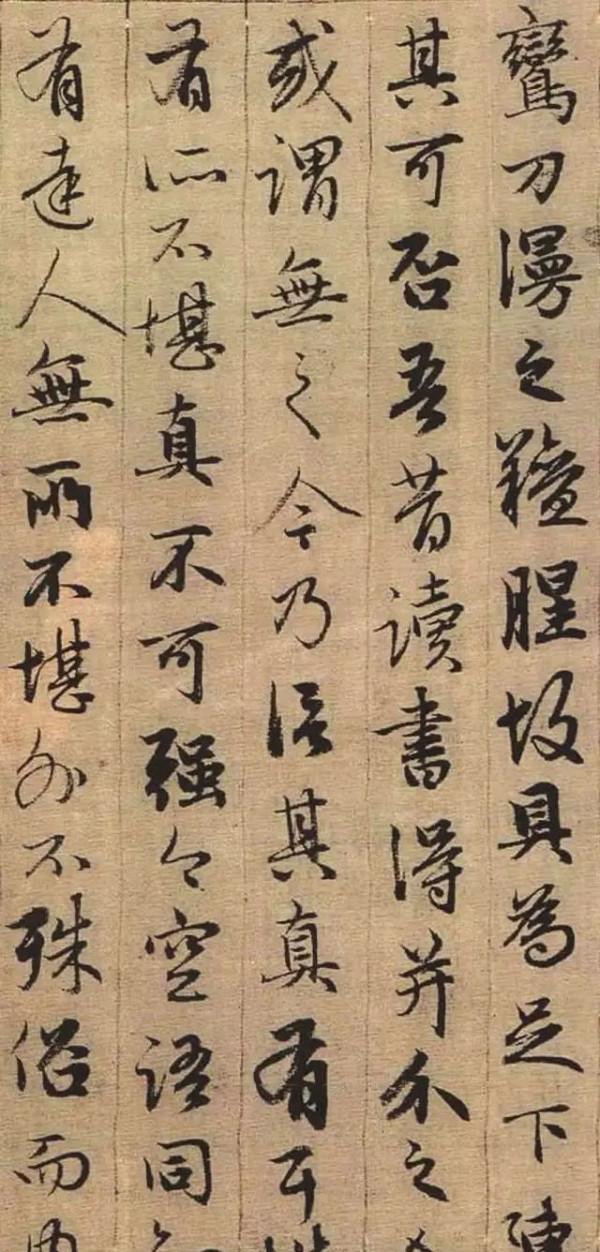 鸞刀漫之羶腥故具為足下陳
其可否吾昔讀書得并介之
或謂無之今乃信其真有耳
有所不堪真不可強今空語同
有達人無所不堪外不殊俗而內